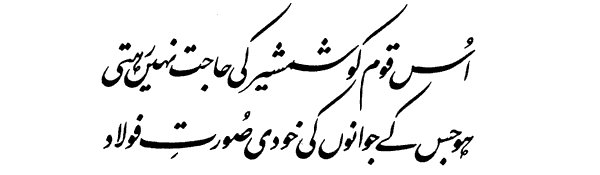 اُس قوم کو شمشیر کی حاجت نہیں رَہتی
ہو جس کے جوانوں کی خودی صُورتِ فولاد